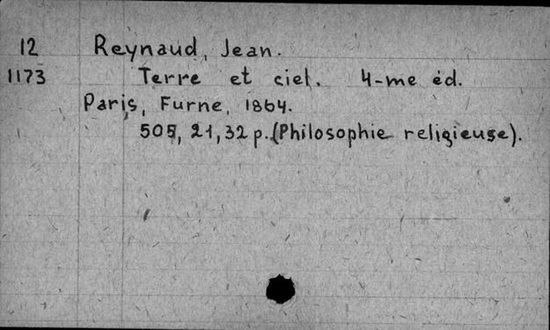 12 Reynaud, Jean.
1173 Terre et ciel. 4-me éd.
Paris, Furne, 1864.
505, 21, 32 p. (Philosophie religieuse).